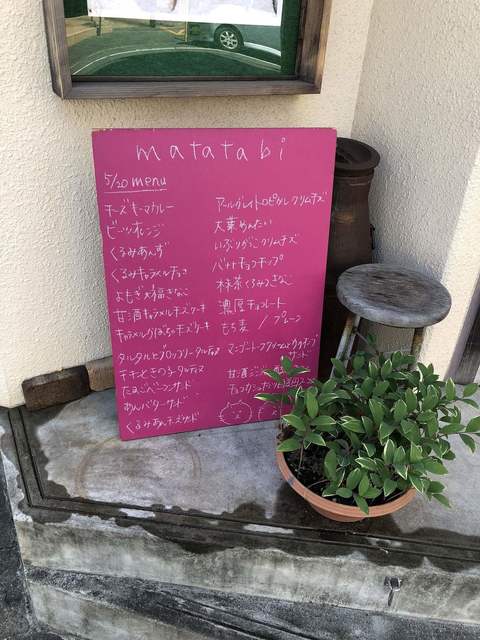 matatabi
5/20 menu
チーズキーマカレー
ビーツオレンジ
くるみあんず
くるみキャラメルチョコ
よもぎ大福きなこ
甘酒キャラメルチーズケーキ
キャラメルかぼちゃチーズケーキ
タルタルとブロッコリータルティーヌ
チキンときのこタルティーヌ
たまごベーコンサンド
あんバターサンド
くるみあんチーズサンド
アールグレイトロピカルクリームチーズ
大葉めんたい
いぶりがっこクリームチーズ
バナナチョコチップ
抹茶くるみつきなこ
濃厚チョコレート
もち麦 / プレーン
サンド
甘酒
チョコ